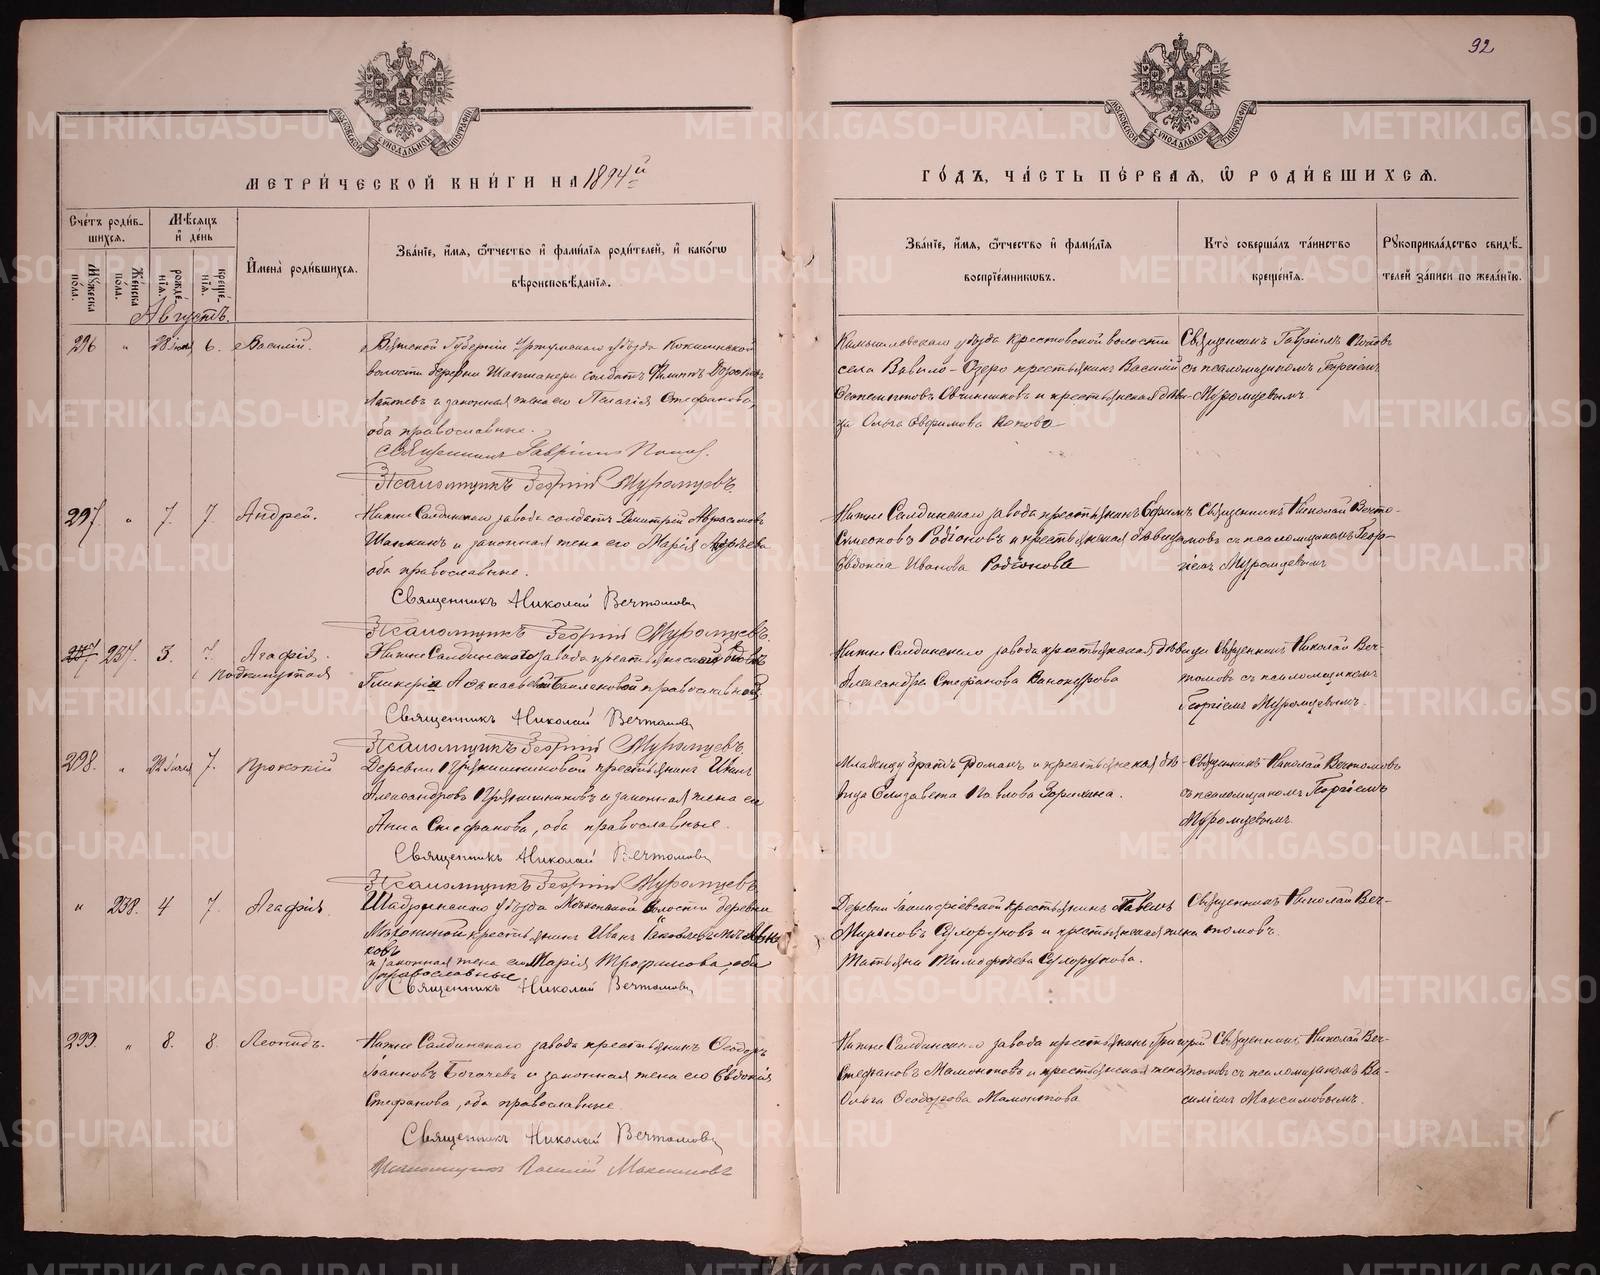 92
МЕТРИ́ЧЕСКОЙ КНИ́ГИ НА 1894й
ГО́ДЪ, ЧА́СТЬ ПЕ́РВАЯ, Ѡ РОДИ́ВШИХСѦ.
Сче́тъ роди́в-
шихся.
Мѣ́сяцъ
и де́нь
Му́жеска по́ла.
Же́нска по́ла.
рожде́нїѧ.
креще́нїѧ.
И҆мена̀ роди́вшихсѧ.
Зва́нїе, и҆́мѧ, ѻ҆́тчество и҆ фами́лїѧ роди́телей, и҆ како́гѡ
вѣроисповѣ́данїѧ.
Зва́нїе, и҆́мѧ, ѻ҆́тчество и҆ фами́лїѧ
воспрїе́мниковъ.
Кто̀ соверша́лъ та́инство
креще́нїѧ.
Рꙋкоприкла́дство свидѣ́-
телей за́писи по жела́нїю.
Августъ.
296 " 28 Іюля 6. Василій.
Вятской Губерніи Уржумскаго уѣзда Кокшинской
волости деревни солдатъ Филиппъ
Лаптевъ и законная жена его Пелагія Стефанова,
оба православные.
Священникъ Гавріилъ Поповъ.
Псаломщикъ Георгій Муромцевъ.
Камышловскаго уѣзда Крестовской волости
села Вавило-Озеро крестьянинъ Василій
Овчинниковъ и крестьянская дѣви-
ца Ольга Евфимова Попова
Священникъ Гавріилъ Поповъ
съ псаломщикомъ Георгіемъ
Муромцевымъ
297. " 7. 7. Андрей.
Нижне Салдинскаго завода солдатъ Дмитрій Аврамовъ
Шапкинъ и законная жена его Марія
оба православные.
Священникъ Николай Вечтомовъ
Псаломщикъ Георгій Муромцевъ.
Нижне Салдинскаго завода крестьянинъ Ефимъ
Симеоновъ Родіоновъ и крестьянская дѣвица
Евдокія Иванова Родіонова
Священникъ Николай Вечто-
мовъ съ псаломщикомъ Геор-
гіемъ Муромцевымъ
237. 3. 7. Агафія.
Подкинутая
Нижне Салдинскаго завода крестьянской вдовѣ
Гликеріи Аѳанасьевой православной.
Священникъ Николай Вечтомовъ
Псаломщикъ Георгій Муромцевъ.
Нижне Салдинскаго завода крестьянская дѣвица
Александра Стефанова Винокурова
Священникъ Николай Веч-
томовъ съ псаломщикомъ
Георгіемъ Муромцевымъ.
298. " 22 Іюля 7. Прокопій
Деревни Прянишниковой крестьянинъ Иванъ
Александровъ Прянишниковъ и законная жена его
Анна Стефанова, оба православные.
Священникъ Николай Вечтомовъ
Псаломщикъ Георгій Муромцевъ.
Младенцу братъ Романъ и крестьянская дѣ-
вица Елизавета Павлова Зорихина.
Священникъ Николай Вечтомовъ
съ псаломщикомъ Георгіемъ
Муромцевымъ.
" 238. 4 7. Агафія.
Шадринскаго уѣзда волости деревни
крестьянинъ Иванъ Яковлевъ
и законная жена его Марія Трофимова, оба
православные
Священникъ Николай Вечтомовъ
Деревни крестьянинъ Павелъ
Мироновъ Сухоруковъ и крестьянская жена
Татьяна Тимофѣева Сухорукова.
Священникъ Николай Веч-
томовъ.
299. " 8. 8. Леонидъ.
Нижне Салдинскаго завода крестьянинъ Ѳеодоръ
Іоанновъ Богачевъ и законная жена его Евдокія
Стефанова, оба православные.
Священникъ Николай Вечтомовъ
Псаломщикъ Василій Максимовъ
Нижне Салдинскаго завода крестьянинъ Григорій
Стефановъ Мамонтовъ и крестьянская жена
Ольга Ѳеодорова Мамонтова
Священникъ Николай Веч-
томовъ съ псаломщикомъ Ва-
силіемъ Максимовымъ.
METRIKI.GASO-URAL.RU